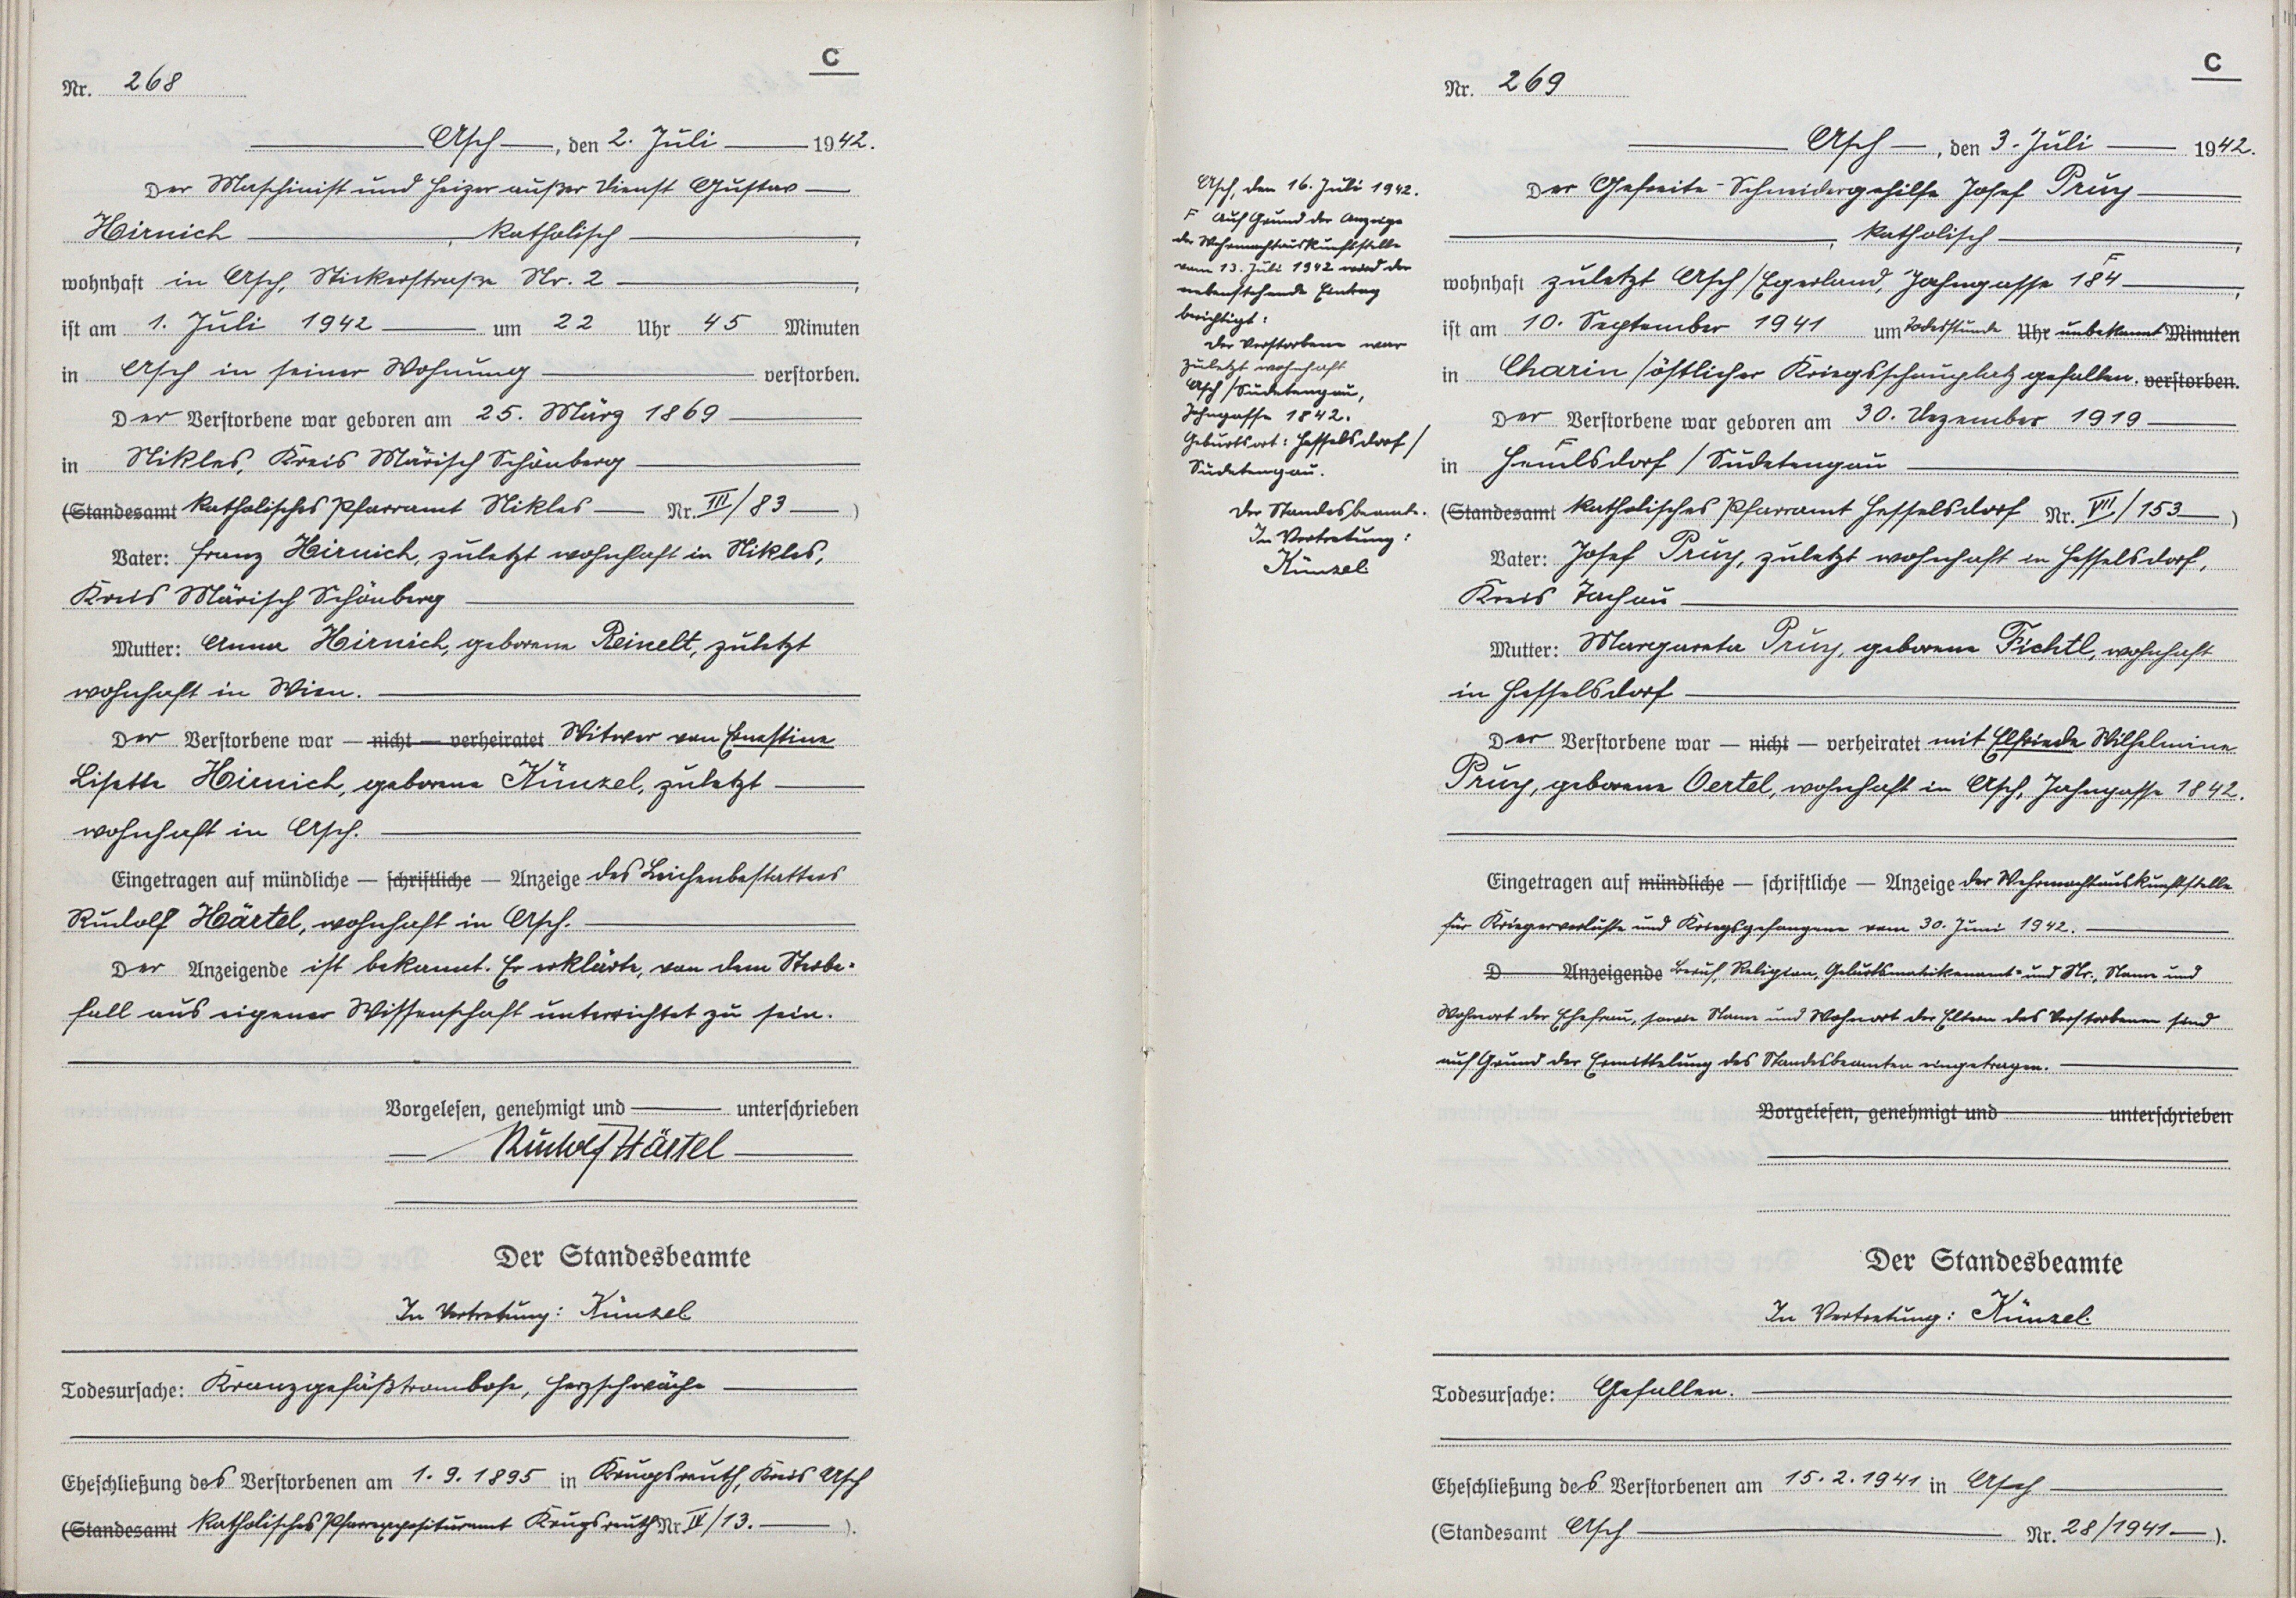 C
Nr. 268
Asch, den 2. Juli 1942.
Der Maschinist und Heizer außer Dienst Gustav
Hirnich, katholisch,
wohnhaft in Asch, Stickerstraße Nr. 2,
ist am 1. Juli 1942 um 22 Uhr 45 Minuten
in Asch in seiner Wohnung verstorben.
Der Verstorbene war geboren am 25. März 1869
in Nikles, Kreis Märisch Schönberg
(Standesamt katholisches Pfarramt Nikles Nr. III/83)
Vater: Franz Hirnich, zuletzt wohnhaft in Nikles,
Kreis Märisch Schönberg
Mutter: Anna Hirnich, geborene Reinelt, zuletzt
wohnhaft in Wien.
Der Verstorbene war — nicht — verheiratet Witwer von Ernestine
Lisette Hirnich, geborene Künzel, zuletzt
wohnhaft in Asch.
Eingetragen auf mündliche — schriftliche — Anzeige des Leichenbestatters
Rudolf Härtel, wohnhaft in Asch.
Der Anzeigende ist bekannt. Er erklärte, von dem Sterbe-
fall aus eigener Wissenschaft unterrichtet zu sein.
Vorgelesen, genehmigt und unterschrieben
Rudolf Härtel
Der Standesbeamte
In Vertretung: Künzel
Todesursache: Kranzgefäßtrombose, Herzschwäche
Eheschließung des Verstorbenen am 1.9.1895 in Krugsreuth, Kreis Asch
(Standesamt katholisches Pfarrexposituramt Krugsreuth Nr. IV/13.).
C
Nr. 269
Asch, den 3. Juli 1942.
Der Gefreite - Schneidergehilfe Josef Prüy
katholisch,
wohnhaft zuletzt Asch/Egerland, Jahngasse 184,
ist am 10. September 1941 um Todesstunde Uhr unbekannt Minuten
in Charin/östlicher Kriegsschauplatz gefallen. verstorben.
Der Verstorbene war geboren am 30. Dezember 1919
in Hemlsdorf/Sudetengau
(Standesamt katholisches Pfarramt Hesselsdorf Nr. VII/153)
Vater: Josef Prüy, zuletzt wohnhaft in Hesselsdorf,
Kreis Tachau
Mutter: Margareta Prüy, geborene Fichtl, wohnhaft
in Hesselsdorf
Der Verstorbene war — nicht — verheiratet mit Elfriede Wilhelmine
Prüy, geborene Oertel, wohnhaft in Asch, Jahngasse 1842.
Eingetragen auf mündliche — schriftliche — Anzeige der Wehrmachtauskunftstelle
für Kriegerverluste und Kriegsgefangene vom 30. Juni 1942.
D Anzeigende Beruf, Religion, Geburtsmatrikenamt und Nr., Name und
Wohnort der Ehefrau, sowie Name und Wohnort der Eltern des Verstorbenen sind
auf Grund der Ermittelung des Standesbeamten eingetragen.
Vorgelesen, genehmigt und unterschrieben
Der Standesbeamte
In Vertretung: Künzel.
Todesursache: Gefallen.
Eheschließung des Verstorbenen am 15.2.1941 in Asch
(Standesamt Asch Nr. 28/1941).
Asch, den 16. Juli 1942.
F Auf Grund der Anzeige
der Wehrmachtauskunftstelle
vom 13. Juli 1942 wird der
nebenstehende Eintrag
berichtigt:
Der Verstorbene war
zuletzt wohnhaft
Asch/Sudetengau,
Jahngasse 1842.
Geburtsort: Hesselsdorf/
Sudetengau.
Der Standesbeamte.
In Vertretung:
Künzel